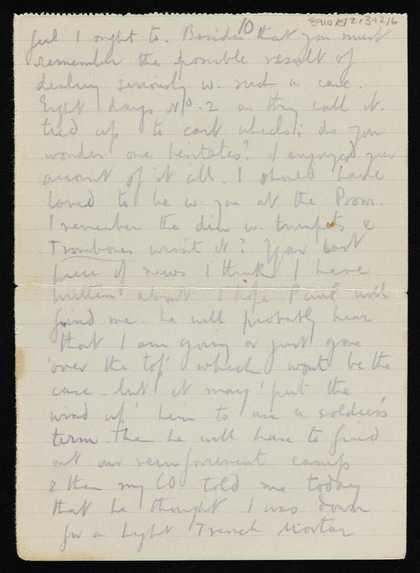 10
feel I ought to. Besides that you must
remember the possible result of
dealing seriously w. such a case.
Eight days No. 2 as they call it.
tied up to cart wheels; do you
wonder one hesitates? I enjoyed your
account of it all. I should have
loved to be w. you at the Prom.
I remember the dim w. trumpets &
Trombones wasn't it? Your last
piece of news I think I have
written about. I hope Paul will
find me. he will probably hear
that I am going or just gone
'over the top' which wont be the
case - but it may 'put the
wind up' him to use a soldier's
term. Then he will have to find
out our reinforcement camp
& then my CO told me today
that he thought I was down
for a Light Trench Mortar